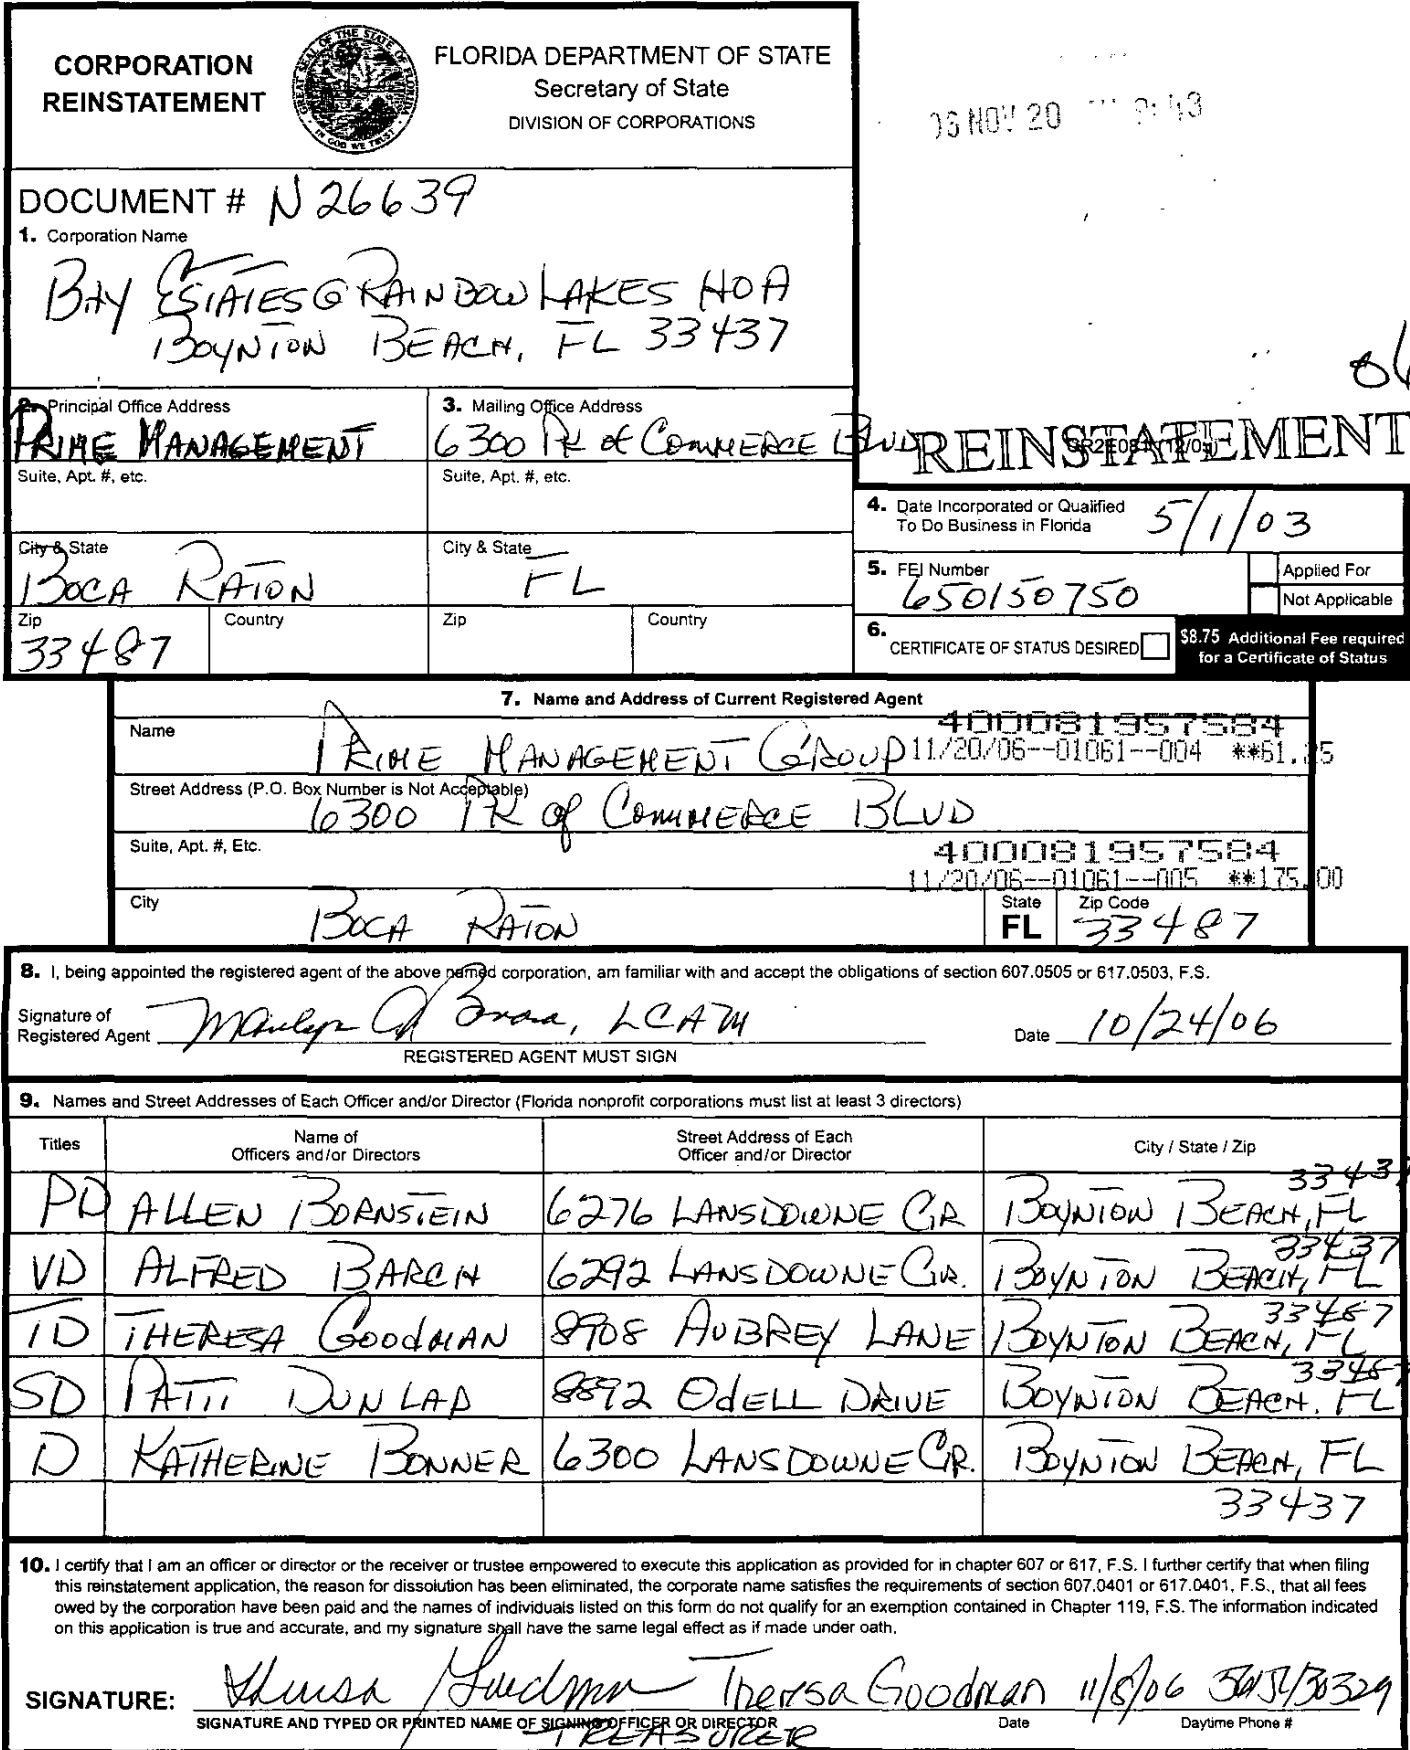 CORPORATION
REINSTATEMENT
GREAT SEAL OF THE STATE OF FLORIDA
IN GOD WE TRUST
FLORIDA DEPARTMENT OF STATE
Secretary of State
DIVISION OF CORPORATIONS
06 NOV 20
DOCUMENT # N26639
1. Corporation Name
BAY ESTATES @ RAINBOW LAKES HOA
BOYNTON BEACH, FL 33437
2. Principal Office Address
PRIME MANAGEMENT
3. Mailing Office Address
6300 PK of COMMERCE BLVD
REINSTATEMENT
Suite, Apt. #, etc.
Suite, Apt. #, etc.
4. Date Incorporated or Qualified
To Do Business in Florida
5/1/03
City & State
BOCA RATON
City & State
FL
5. FEI Number
650150750
Applied For
Not Applicable
Zip
33487
Country
Zip
Country
6.
CERTIFICATE OF STATUS DESIRED
$8.75 Additional Fee required
for a Certificate of Status
7. Name and Address of Current Registered Agent
400081957584
Name
PRIME MANAGEMENT GROUP
11/20/06--01061--004 **61.25
Street Address (P.O. Box Number is Not Acceptable)
6300 PK of COMMERCE BLVD
Suite, Apt. #, Etc.
400081957584
11/20/06--01061--005 **175.00
City
BOCA RATON
State
FL
Zip Code
33487
8. I, being appointed the registered agent of the above named corporation, am familiar with and accept the obligations of section 607.0505 or 617.0503, F.S.
Signature of
Registered Agent
LCAM
Date 10/24/06
REGISTERED AGENT MUST SIGN
9. Names and Street Addresses of Each Officer and/or Director (Florida nonprofit corporations must list at least 3 directors)
Titles
Name of
Officers and/or Directors
Street Address of Each
Officer and/or Director
City / State / Zip
PD ALLEN BORNSTEIN 6276 LANSDOWNE CIR BOYNTON BEACH, FL 33437
VD ALFRED BARCH 6292 LANSDOWNE CIR. BOYNTON BEACH, FL 33437
TD THERESA GOODMAN 8908 AUBREY LANE BOYNTON BEACH, FL
SD PATTI DUNLAP 8892 ODELL DRIVE BOYNTON BEACH, FL
D KATHERINE BONNER 6300 LANSDOWNE CIR. BOYNTON BEACH, FL
33437
10. I certify that I am an officer or director or the receiver or trustee empowered to execute this application as provided for in chapter 607 or 617, F.S. I further certify that when filing
this reinstatement application, the reason for dissolution has been eliminated, the corporate name satisfies the requirements of section 607.0401 or 617.0401, F.S., that all fees
owed by the corporation have been paid and the names of individuals listed on this form do not qualify for an exemption contained in Chapter 119, F.S. The information indicated
on this application is true and accurate, and my signature shall have the same legal effect as if made under oath.
SIGNATURE: Theresa Goodman Theresa Goodman 11/8/06
SIGNATURE AND TYPED OR PRINTED NAME OF SIGNING OFFICER OR DIRECTOR
Date
Daytime Phone #
TREASURER